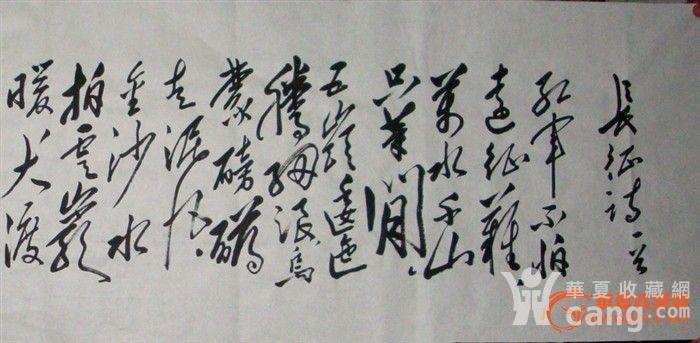 長征詩一首
紅軍不怕
遠征難
萬水千山
只等閒
五嶺逶迤
騰細浪烏
蒙磅礴
走泥丸
金沙水
拍雲巖
暖大渡
華夏收藏網
cang.com